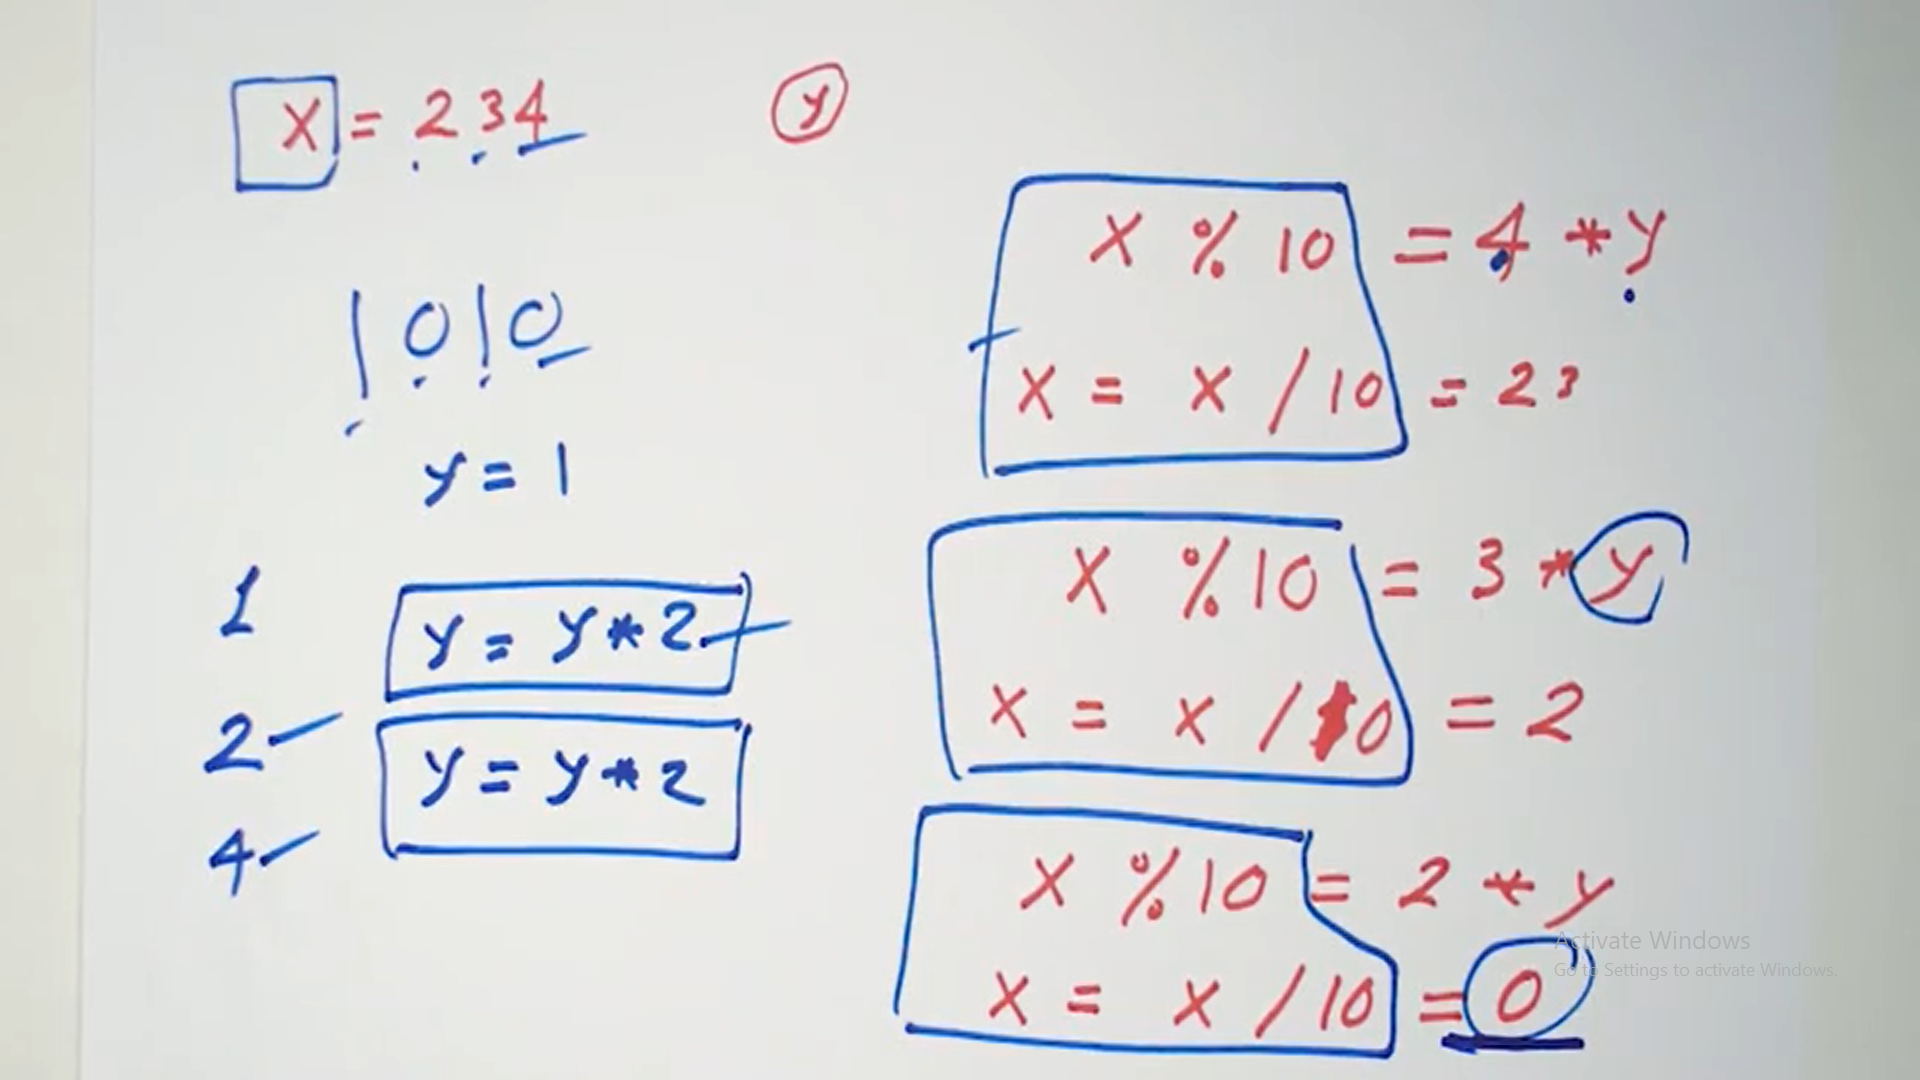 x = 234
y
1010
y = 1
1
y = y * 2
2
y = y * 2
4
x % 10 = 4 * y
x = x / 10 = 23
x % 10 = 3 * y
x = x / 10 = 2
x % 10 = 2 * y
x = x / 10 = 0
Activate Windows
Go to Settings to activate Windows.